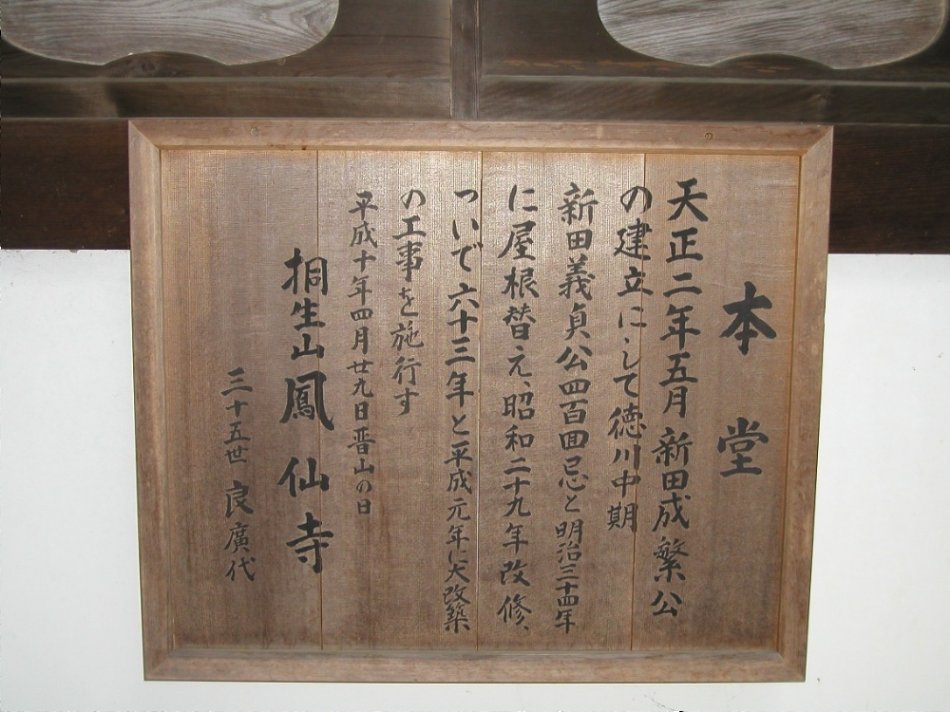 本堂
天正二年五月新田成繁公
の建立にして徳川中期
新田義貞公四百回忌と明治三十四年
に屋根替え、昭和二十九年改修、
ついで六十三年と平成元年に大改築
の工事を施行す
平成十年四月廿九日晋山の日
桐生山鳳仙寺
三十五世良廣代